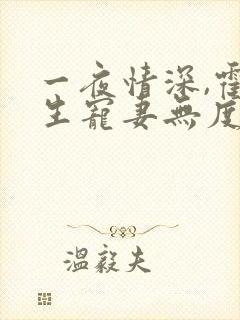 一夜情深,霍
生寵妻無度
溫毅夫